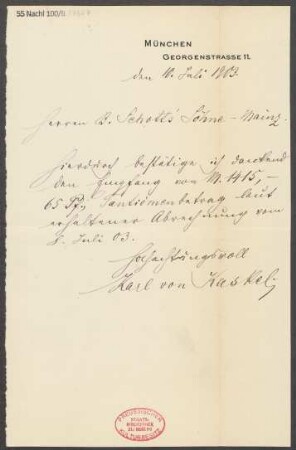 55 Nachl 100/B
MÜNCHEN
GEORGENSTRASSE 11.
den 10. Juli 1903.
Herren B. Schott's Söhne – Mainz.
Hierdurch bestätige ich dankend
den Empfang von M. 1415,–
65 Pf, Tantièmenbetrag laut
erhaltener Abrechnung vom
Juli 03.
Hochachtungsvoll
Karl von Kaskel